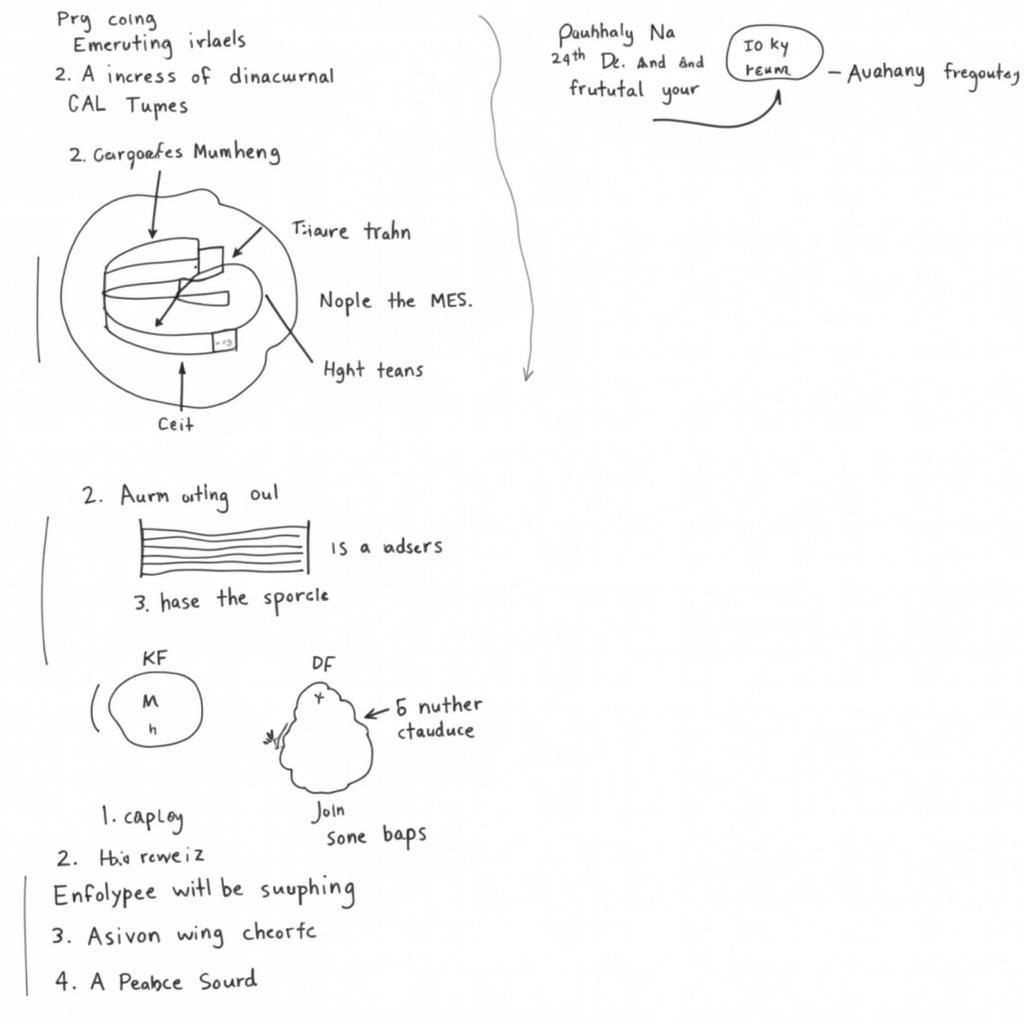 Pry coing
Emeruting irlaels
2. A incress of dinacurnal
CAL Tumes
2. Gargoafes Mumheng
Tiaure trahn
Nople the MES.
Hght teans
Ceit
2. Aurm outing oul
IS a udsers
3. hase the sporcle
KF
M
h
DF
5 nuther
ctauduce
1. capley
Join
Sone baps
2. reweiz
Enfolypee witl be suuphing
3. Asivon wing cheorfc
4. A Peabce Sourd
Pauhhaly Na
24th De. And And
frututal your
IO ky
reum
– Auahany fregoutes